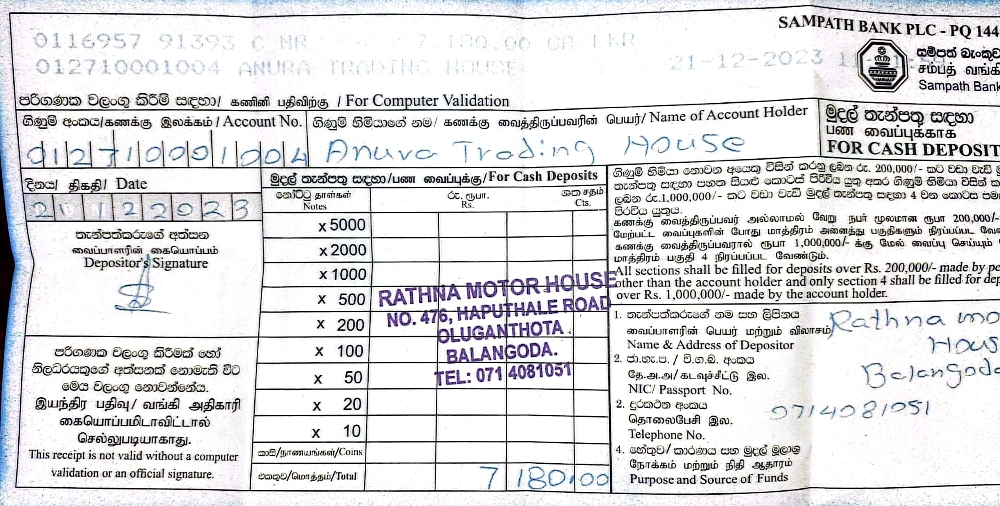 SAMPATH BANK PLC - PQ 144
0116957 91393 C NR 7,180.00 CR LKR
012710001004 ANURA TRADING HOUSE 21-12-2023
සම්පත් බැංකුව
சம்பத் வங்கி
Sampath Bank
පරිගණක වලංගු කිරීම් සඳහා / கணினி பதிவிற்கு / For Computer Validation
ගිණුම් අංකය/கணக்கு இலக்கம் / Account No.
ගිණුම් හිමියාගේ නම / கணக்கு வைத்திருப்பவரின் பெயர் / Name of Account Holder
012710001004 Anura Trading House
මුදල් තැන්පතු සඳහා
பண வைப்புக்காக
FOR CASH DEPOSIT
දිනය/ திகதி / Date
21122023
තැන්පත්කරුගේ අත්සන
வைப்பாளரின் கையொப்பம்
Depositor's Signature
පරිගණක වලංගු කිරීමක් හෝ
නිලධරයකුගේ අත්සනක් නොමැති විට
මෙය වලංගු නොවන්නේය.
இயந்திர பதிவு/ வங்கி அதிகாரி
கையொப்பமிடாவிட்டால்
செல்லுபடியாகாது.
This receipt is not valid without a computer
validation or an official signature.
මුදල් තැන්පතු සඳහා/பண வைப்புக்கு/For Cash Deposits
නෝට්ටු தாள்கள்
Notes
රු. ரூபா.
Rs.
ශත சதம்
Cts.
x 5000
x 2000
x 1000
x 500
x 200
x 100
x 50
x 20
x 10
කාසි/நாணயங்கள்/Coins
එකතුව/மொத்தம்/Total 7 180.00
RATHNA MOTOR HOUSE
NO. 476, HAPUTHALE ROAD
OLUGANTHOTA.
BALANGODA.
TEL: 071 4081051
ගිණුම් හිමියා නොවන අයෙකු විසින් කරනු ලබන රු. 200,000/- කට වඩා වැඩි
තැන්පතු සඳහා පහත සියළු කොටස් පිරවිය යුතු අතර ගිණුම් හිමියා විසින්
ලබන රු.1,000,000/- කට වඩා වැඩි මුදල් තැන්පතු සඳහා 4 වන කොටස
පිරවිය යුතුය.
கணக்கு வைத்திருப்பவர் அல்லாமல் வேறு நபர் மூலமான ரூபா 200,000/-
மேற்பட்ட வைப்புகளின் போது மாத்திரம் அனைத்து பகுதிகளும் நிரப்பப்பட
கணக்கு வைத்திருப்பவரால் ரூபா 1,000,000/- க்கு மேல் வைப்பு செய்யும்
மாத்திரம் பகுதி 4 நிரப்பப்பட வேண்டும்.
All sections shall be filled for deposits over Rs. 200,000/- made by
other than the account holder and only section 4 shall be filled for
over Rs. 1,000,000/- made by the account holder.
1. තැන්පත්කරුගේ නම සහ ලිපිනය
வைப்பாளரின் பெயர் மற்றும் விலாசம்
Name & Address of Depositor
Rathna
Balangoda
2. ජා.හැ.ප. / වි.ග.බ. අංකය
தே.அ.அ/ கடவுச்சீட்டு இல.
NIC/ Passport No.
2. දුරකථන අංකය
தொலைபேசி இல.
Telephone No.
0714081051
4. හේතුව/ කාරණය සහ මුදල් මූලාශ්‍ර
நோக்கம் மற்றும் நிதி ஆதாரம்
Purpose and Source of Funds